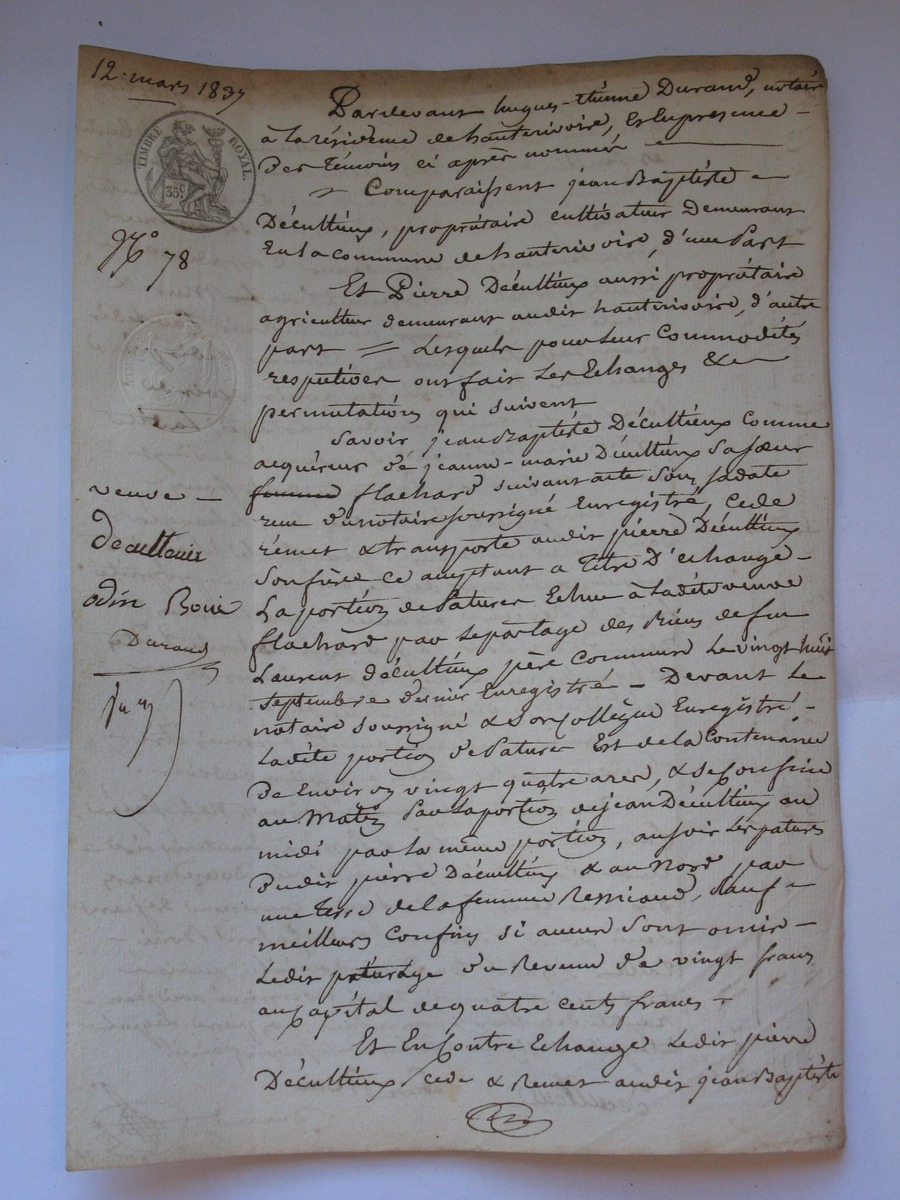 12 mars 1837
TIMBRE ROYAL.
35c
No 78
Pardevant hugues-étienne Durand, notaire
à la résidence de hauterivoire, Et En présence
Des témoins ci après nommés
Comparaissent jean Baptiste
Décultieux, propriétaire cultivateur Demeurant
En la commune de hauterivoire, d'une Part
Et Pierre Décultieux aussi propriétaire
agriculteur demeurant audit hauterivoire, d'autre
part = Lesquels pour leur Commodités
respectives ont fait Les Echanges &
permutations qui suivent
Savoir jean Baptiste Décultieux Comme
acquéreur de jeanne-marie Décultieux Sa sœur
femme flachard suivant acte Sous sa date
reçu du notaire soussigné Enregistré, Cede
rémet & transporte audit pierre Décultieux
Son frère ce acceptant a titre D'échange
La portion de Patures Echue à Ladite veuve
flachard par Le partage des Biens de feu
Laurent décultieux père Commun Le vingt huit
Septembre dernier Enregistré - Devant Le
notaire soussigné & Son Collègue Enregistré
Ladite portion de Patures Est de la Contenance
De Environ vingt quatre ares, & Se Confine
au Matin Par La portion de jean Décultieux au
midi par la même portion, au soir Les patures
Dudit pierre Décultieux & au Nord par
une terre de la femme Ressicaud, Sauf
meilleurs Confins si aucun Sont omis
Ledit paturage du Revenu de vingt francs
au Capital de quatre cents francs
Et En Contre Echange Ledit pierre
Décultieux Cede & Remet audit jean Baptiste
veuve
Decultieux
odin Boire
Durand